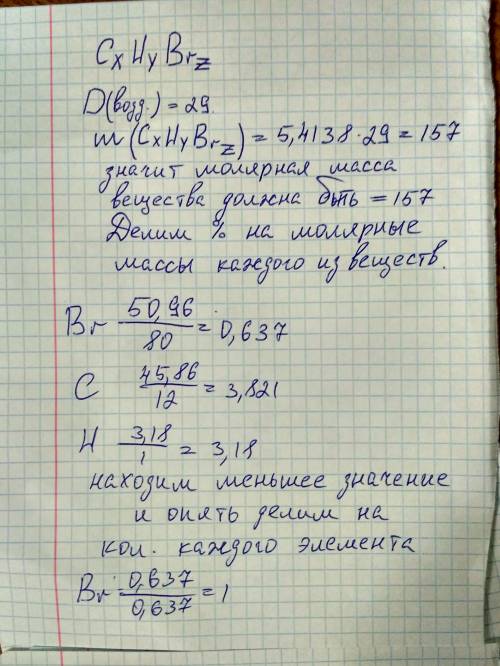 CxHyBrz
D(возд.) = 29.
m(CxHyBrz) = 5,4138·29 = 157
значит молярная масса
вещества должна быть = 157
Делим % на молярные
массы каждого из веществ.
Br 50,96/80 = 0,637
C 45,86/12 = 3,821
H 3,18/1 = 3,18
находим меньшее значение
и опять делим на
кол. каждого элемента
Br 0,637/0,637 = 1